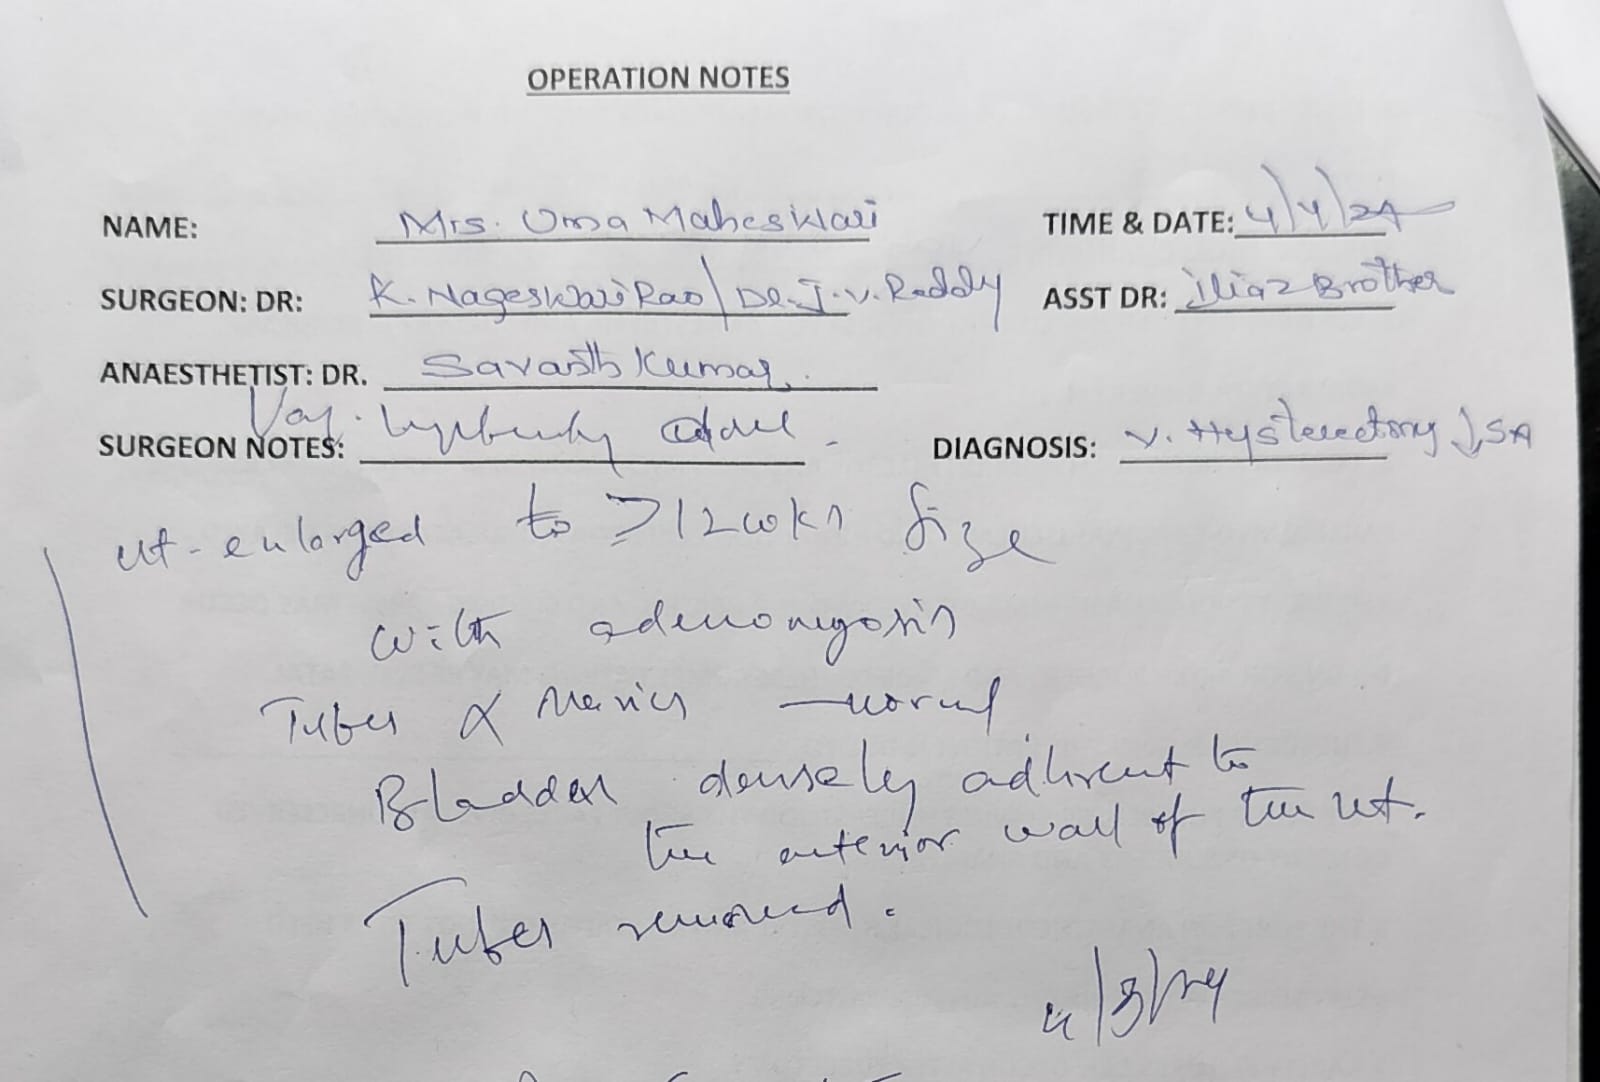 OPERATION NOTES
NAME: Mrs. Uma Maheswari TIME & DATE: 4/4/24
SURGEON: DR: K. Nageswari Rao / Dr. J. V. Reddy ASST DR: iliaz Brother
ANAESTHETIST: DR. Savanth Kumar.
SURGEON NOTES: Vag. DIAGNOSIS: V. Hysterectomy SA
ut-enlarged to ≥12wks size
with adenomyosis
Tubes & normal
Bladder densely adherent to
the anterior wall of the ut.
Tubes removed.
4/3/24